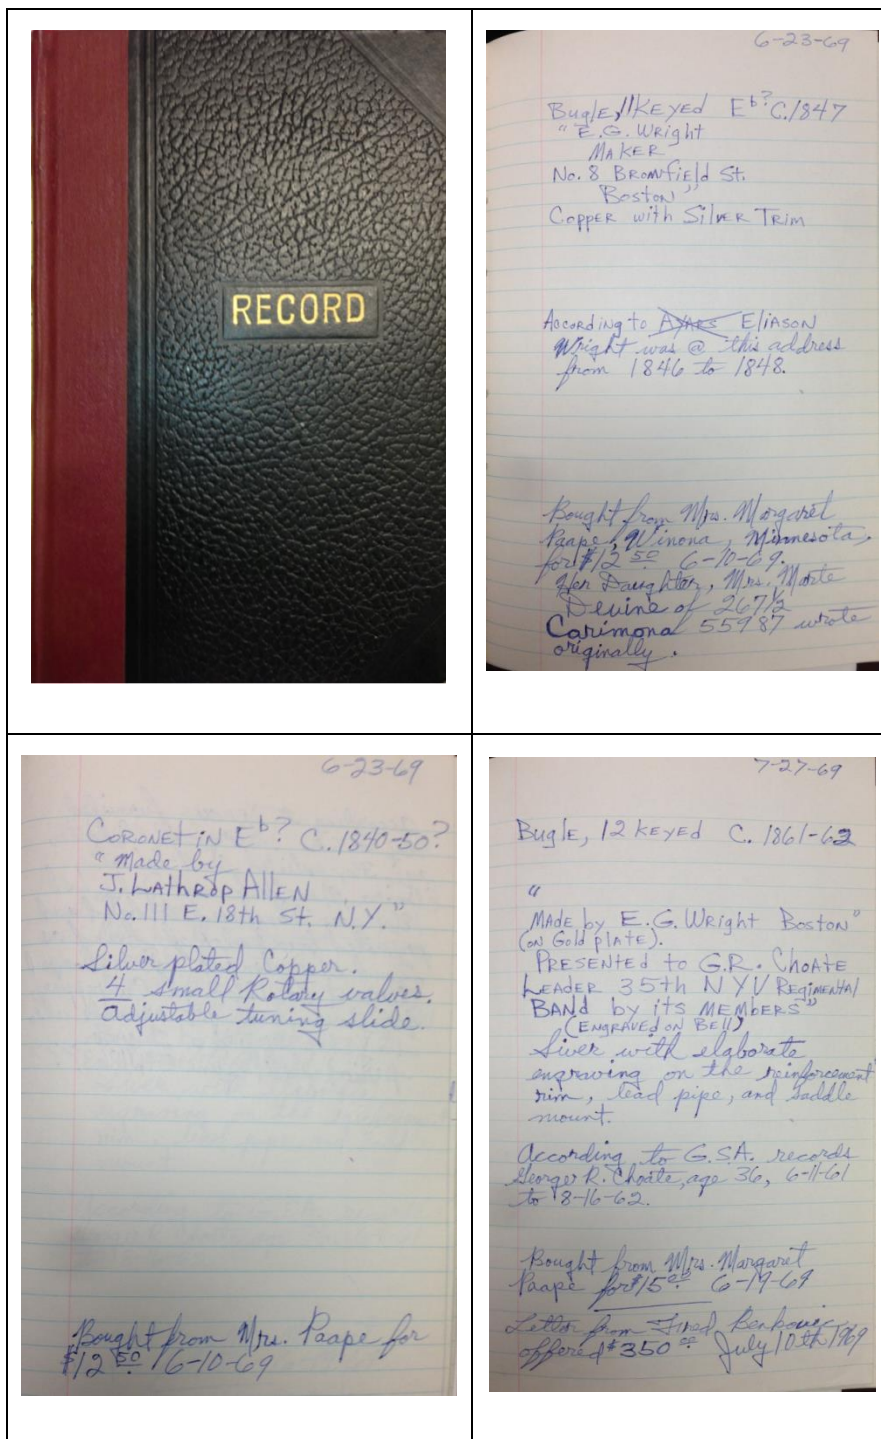 RECORD
6-23-69
Bugle, 11 Keyed Eb? C.1847
"E.G. Wright
Maker
No. 8 Bromfield St.
Boston"
Copper with Silver Trim
According to Ayars Eliason
Wright was @ this address
from 1846 to 1848.
Bought from Mrs. Margaret
Paape, Winona, Minnesota,
for $12 50 6-10-69.
Her Daughter, Mrs. Morte
Devine of 267½
Carimona 55987 wrote
originally.
6-23-69
Coronet in Eb? C. 1840-50?
"Made by
J. Lathrop Allen
No. 111 E. 18th St. N.Y."
Silver plated Copper.
4 small Rotary valves.
adjustable tuning slide.
Bought from Mrs. Paape for
$12 50 6-10-69
7-27-69
Bugle, 12 Keyed C. 1861-62
"
Made by E.G. Wright Boston"
(on Gold plate).
Presented to G.R. Choate
Leader 35th NYV Regimental
Band by its members"
(Engraved on Bell)
Siver with elaborate
engraving on the reinforcement
rim, lead pipe, and saddle
mount.
According to G.S.A. records
George R. Choate, age 36, 6-11-61
to 8-16-62.
Bought from Mrs. Margaret
Paape for $15 00 6-19-69
Letter from Fred
offered $350 00 July 10th 1969